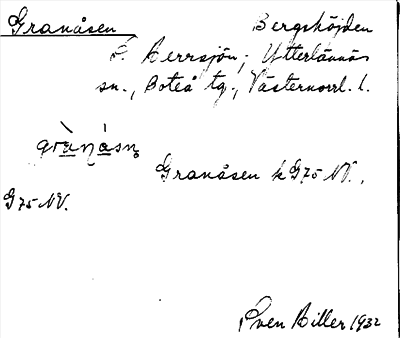 Granåsen Bergshöjden
S. Herrsjön; Ytterlännäs
sn., Boteå tg., Västernorrl. l.
Granåsen k G75 NV.,
G75 NV.
Sven Hiller 1932